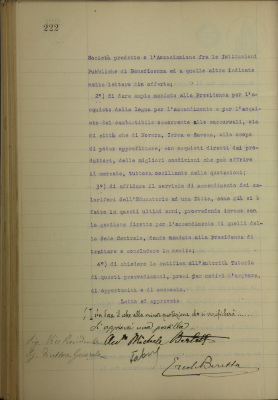 222
Società predette e l'Associazione fra le Istituzioni
Pubbliche di Beneficenza ed a quelle altre indicate
nella lettera di offerta;
2°) di dare ampio mandato alla Presidenza per l'ac-
quisto della legna per l'accendimento e per l'acqui-
sto del combustibile occorrente alle succursali, sia
di città che di Novara, Ivrea e Savona, allo scopo
di poter approfittare, con acquisti diretti dai pro-
duttori, delle migliori condizioni che può offrire
il mercato, tuttora oscillante nelle quotazioni;
3°) di affidare il servizio di accendimento dei ca-
loriferi dell'Educatorio ad una Ditta, come già si è
fatto in questi ultimi anni, provvedendo invece con
la gestione diretta per l'accendimento di quelli del-
la Sede Centrale, dando mandato alla Presidenza di
trattare e concludere in merito;
4°) di chiedere la ratifica all'Autorità Tutoria
di questi provvedimenti, presi per motivi d'urgenza,
di opportunità e di economia.
Letto ed approvato
L'
Michele Bertetti
Ercole Beretta